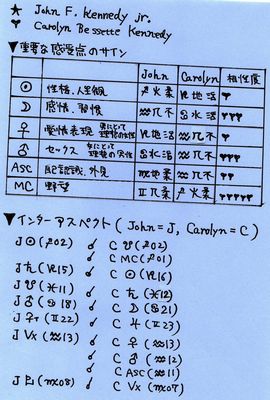 ★ John F. Kennedy jr.
♥ Carolyn Bessette Kennedy
▼重要な感受点のサイン
John Carolyn 相性度
☉ 性格、人生観 ♐火柔 ♑地活 ♥
☽ 感情、習慣 ♒風不 ♋水活 ♥♥♥
♀ 愛情表現 男にとって理想の女性 ♑地活 ♒風不 ♥
♂ セックス 女にとって理想の男性 ♋水活 ♒風不 ♥♥♥
ASC 自己認識、外見 ♍地柔 ♒風不 ♥♥♥
MC 野望 ♊風柔 ♐火柔 ♥♥♥♥♥
▼インターアスペクト (John=J, Carolyn=C)
J ☉(♐02) ☌ C ☋(♐02)
☌ C MC(♐01)
J ♄(♑15) ☌ C ☉(♑16)
J ☋(♓11) ☌ C ♄(♓12)
J ♂(♋18) ☌ C ☽(♋21)
(♊22) ☌ C ♃(♊23)
J Vx(♒13) ☌ C ♀(♒13)
☌ C ♂(♒12)
☌ C ASC(♒11)
(♍08) ☌ C Vx(♍07)